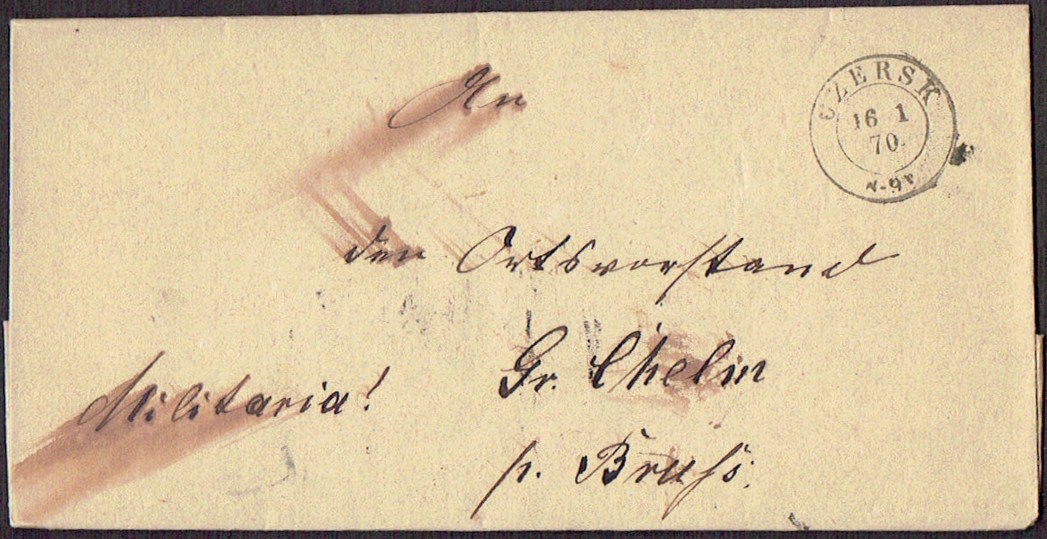 CZERSK
16 1
70.
An
den Ortsvorstand
Gr. Chelm
Militaria!
p. Bruß.